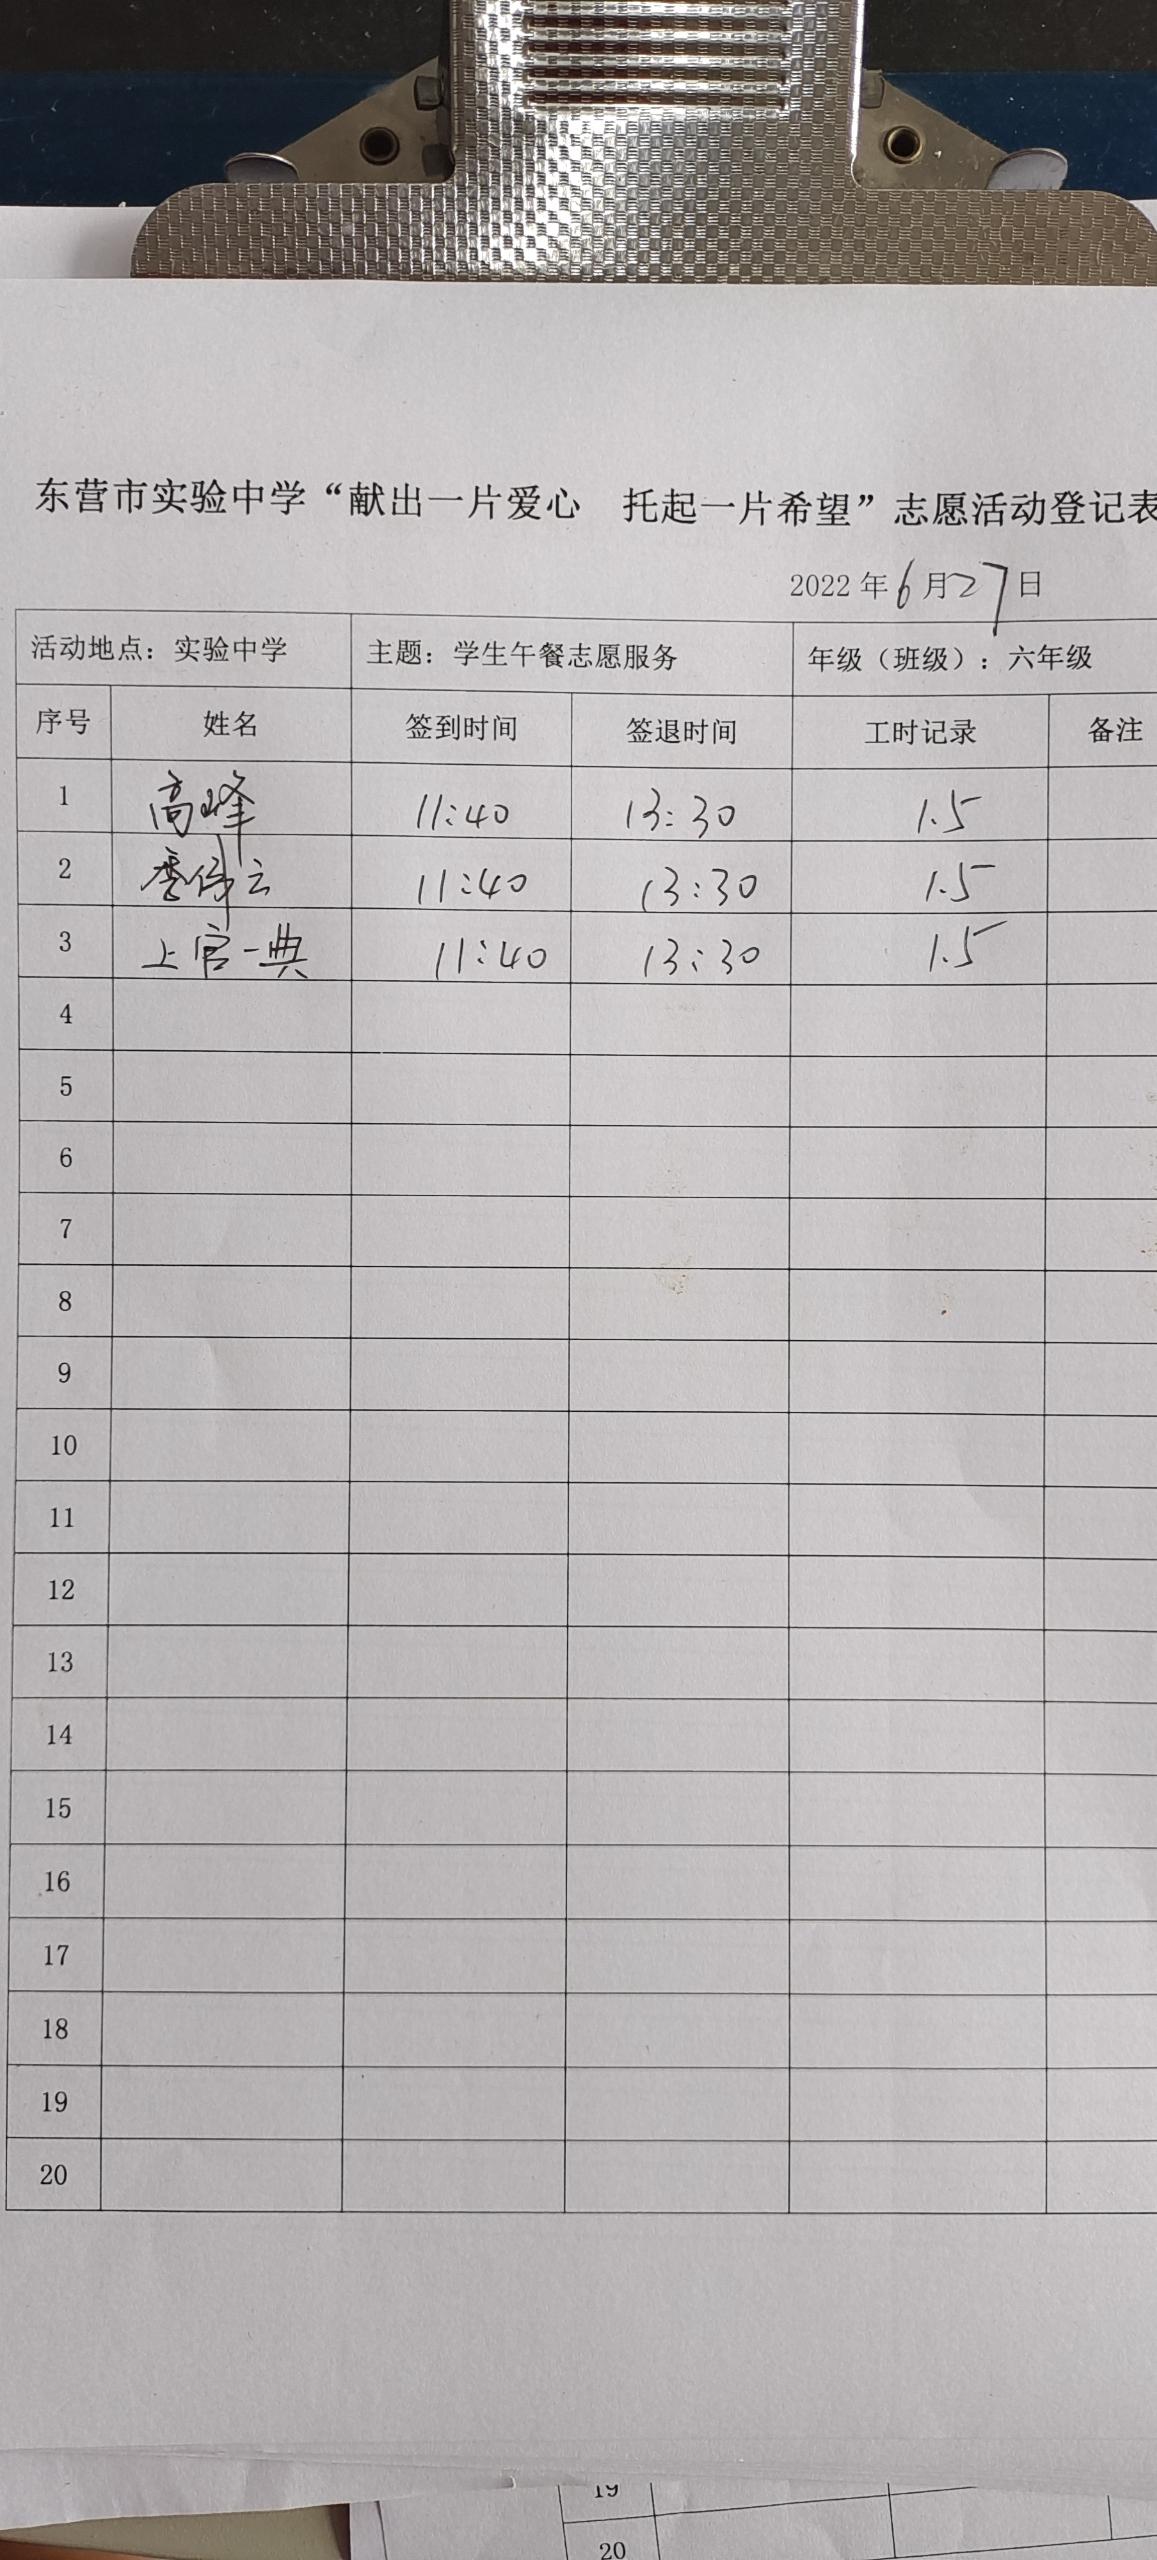 东营市实验中学“献出一片爱心 托起一片希望”志愿活动登记表
2022 年 6 月 27 日
活动地点：实验中学 主题：学生午餐志愿服务 年级（班级）：六年级
序号 姓名 签到时间 签退时间 工时记录 备注
1 高峰 11:40 13:30 1.5
2 11:40 13:30 1.5
3 上官一典 11:40 13:30 1.5
4
5
6
7
8
9
10
11
12
13
14
15
16
17
18
19
20
19
20